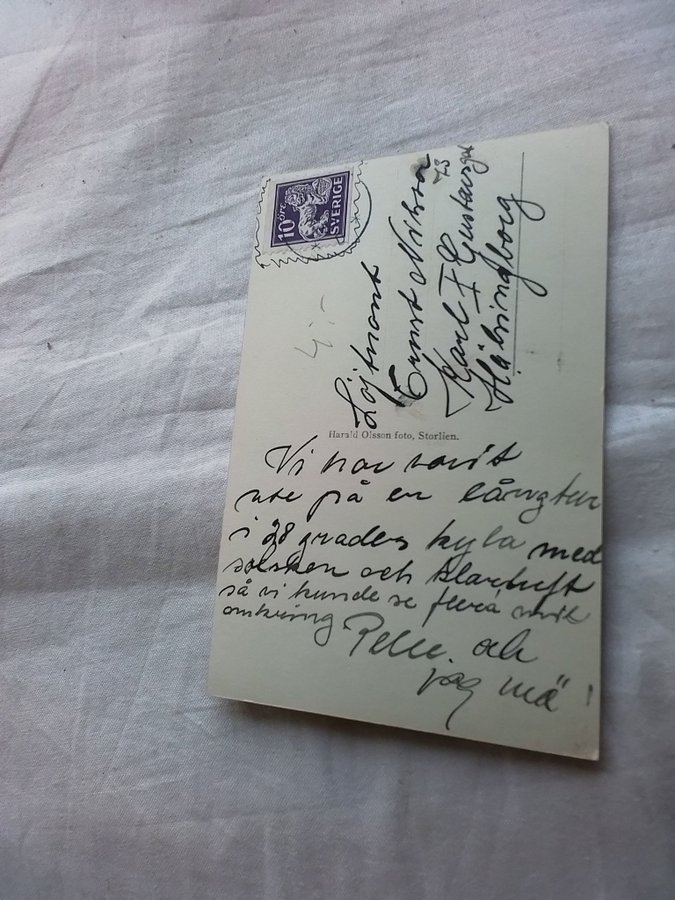 Vi har varit
ute på en långtur
i 28 graders kyla med
solsken och klarluft
så vi kunde se flera mil
omkring. Pelle och
jag må
Harald Olsson foto, Storlien.
10 ÖRE
SVERIGE
4:-
Löjtnant
Ernst Nilsson
Karl X Gustavsgat
73
Hälsingborg